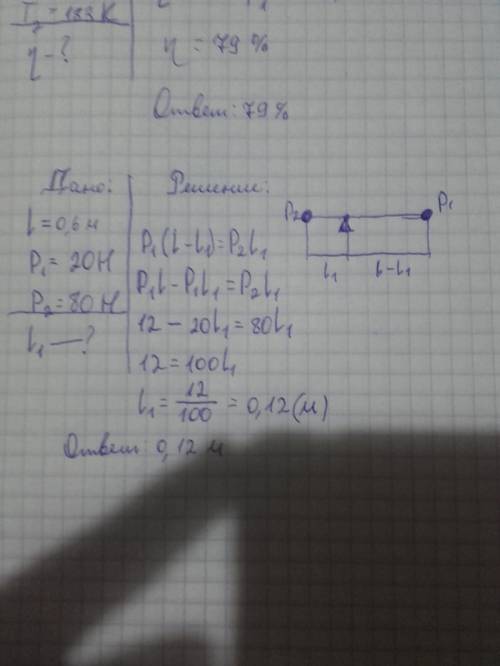 T₂ = 133 K
η - ?
η = 79 %
Ответ: 79 %
Дано:
l = 0,6 м
P₁ = 20 Н
P₂ = 80 Н
l₁ — ?
Решение:
P₁(l - l₁) = P₂l₁
P₁l - P₁l₁ = P₂l₁
12 - 20l₁ = 80l₁
12 = 100l₁
l₁ = 12/100 = 0,12 (м)
Ответ: 0,12 м
P₂ P₁
l₁ l - l₁